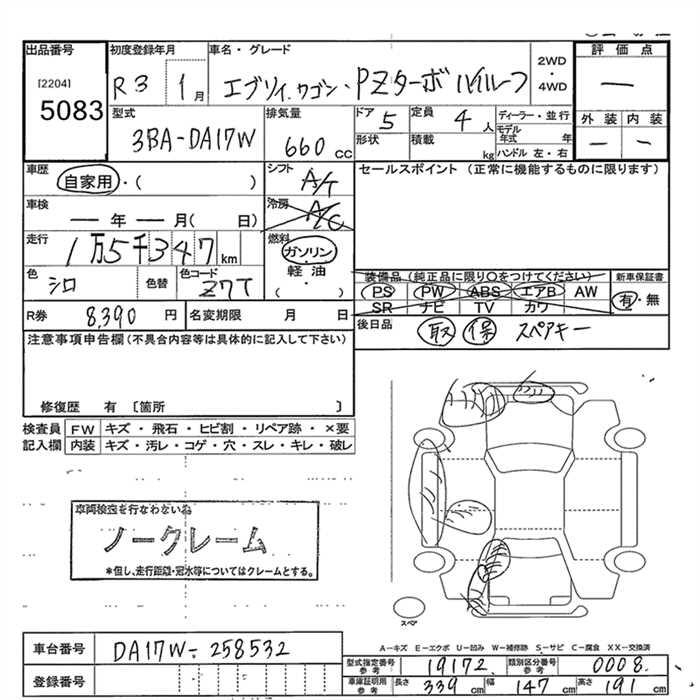 出品番号
[2204]
5083
初度登録年月
R3 1月
車名・グレード
エブリィ.ワゴン・PZターボ ハイルーフ
2WD
・
4WD
評価点
—
外装 内装
— —
型式
3BA-DA17W
排気量
660 cc
ドア
5
定員
4人
ディーラー・並行
形状
積載
kg
モデル年式 年
ハンドル 左・右
車歴
自家用・( )
シフト
A/T
セールスポイント (正常に機能するものに限ります)
車検
— 年 — 月( 日)
冷房
A/C
走行
1万5千347km
燃料
ガソリン
軽油
( ・ )
色
シロ
色替
色コード
Z7T
装備品 (純正品に限り○をつけてください)
PS PW ABS エアB AW
SR ナビ TV カワ
新車保証書
有・無
R券 8,390 円
名変期限 月 日
後日品 取 保 スペアキー
注意事項申告欄(不具合内容等は具体的に記入して下さい)
修復歴 有〔箇所 〕
検査員記入欄
FW キズ・飛石・ヒビ割・リペア跡・×要
内装 キズ・汚レ・コゲ・穴・スレ・キレ・破レ
車両検査を行なわない為
ノークレーム
*但し、走行距離・冠水等についてはクレームとする。
スペア
A-キズ E-エクボ U-凹み W-補修跡 S-サビ C-腐食 XX-交換済
車台番号 DA17W-258532
登録番号
型式指定番号参考 19172
類別区分番号参考 0008.
車庫証明用参考 長さ 339cm 幅 147cm 高さ 191cm